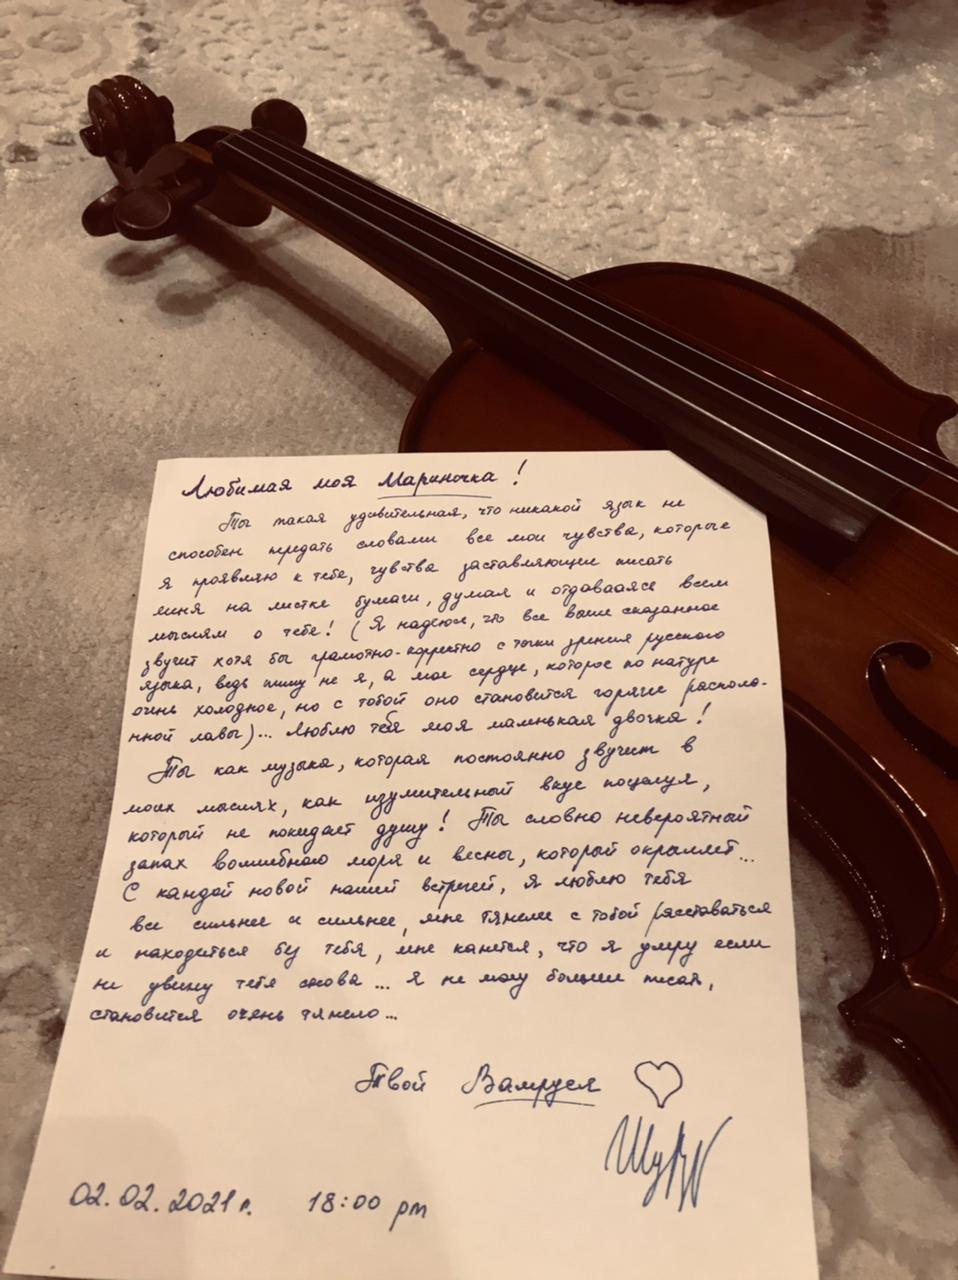 Любимая моя Мариночка!
Ты такая удивительная, что никакой язык не
способен передать словами все мои чувства, которые
я проявляю к тебе, чувства заставляющие писать
меня на листке бумаги, думая и отдаваясь всем
мыслям о тебе! (Я надеюсь, что все выше сказанное
звучит хотя бы грамотно-корректно с точки зрения русского
языка, ведь пишу не я, а мое сердце, которое по натуре
очень холодное, но с тобой оно становится горячее расколе-
нной лавы)... Люблю тебя моя маленькая двочка!
Ты как музыка, которая постоянно звучит в
моих мыслях, как изумительный вкус поцелуя,
который не покидает душу! Ты словно невероятный
запах волшебного моря и весны, который окрыляет...
С каждой новой нашей встречей, я люблю тебя
все сильнее и сильнее, мне тяжелее с тобой расставаться
и находиться без тебя, мне кажется, что я умру если
не увижу тебя снова... Я не могу больше писать,
становится очень тяжело...
Твой
02.02.2021 г. 18:00 pm